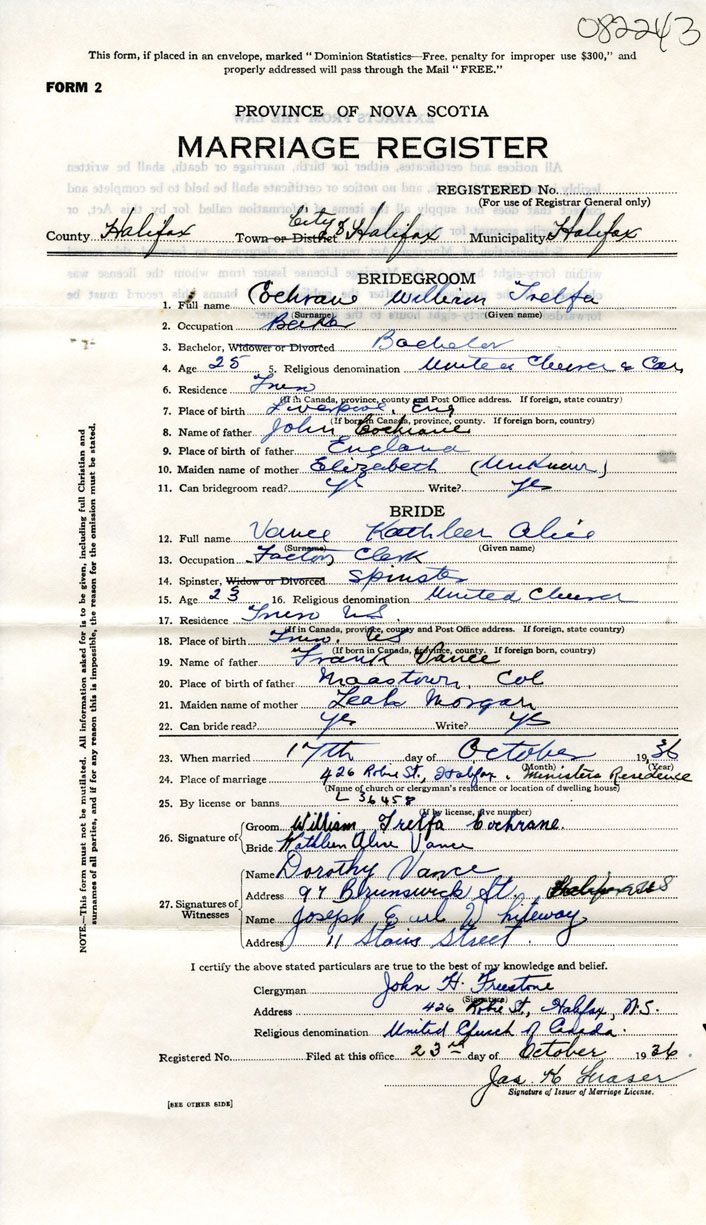 082243
This form, if placed in an envelope, marked "Dominion Statistics—Free, penalty for improper use $300," and
properly addressed will pass through the Mail "FREE."
FORM 2
PROVINCE OF NOVA SCOTIA
MARRIAGE REGISTER
REGISTERED No.
(For use of Registrar General only)
City of
County Halifax Town or District Halifax Municipality Halifax
BRIDEGROOM
1. Full name Cochrane William Trelfa
(Surname) (Given name)
2. Occupation Baker
3. Bachelor, Widower or Divorced Bachelor
4. Age 25 5. Religious denomination United Church of Can.
6. Residence Truro
(If in Canada, province, county and Post Office address. If foreign, state country)
7. Place of birth Liverpool, Eng
(If born in Canada, province, county. If foreign born, country)
8. Name of father John Cochrane
9. Place of birth of father England
10. Maiden name of mother Elizabeth (Unknown)
11. Can bridegroom read? Yes Write? Yes
BRIDE
12. Full name Vance Kathleen Alice
(Surname) (Given name)
13. Occupation Factory Clerk
14. Spinster, Widow or Divorced Spinster
15. Age 23 16. Religious denomination United Church
17. Residence Truro N.S.
(If in Canada, province, county and Post Office address. If foreign, state country)
18. Place of birth Truro, N.S.
(If born in Canada, province, county. If foreign born, country)
19. Name of father Frank Vance
20. Place of birth of father Maastown, Col
21. Maiden name of mother Leah Morgan
22. Can bride read? Yes Write? Yes
23. When married 17th day of October 1936
(Month) (Year)
24. Place of marriage 426 Robie St., Halifax. Ministers Residence
(Name of church or clergyman's residence or location of dwelling house)
25. By license or banns L 36458
(If by license, give number)
26. Signature of Groom William Trelfa Cochrane.
Bride Kathleen Alice Vance
27. Signatures of Witnesses
Name Dorothy Vance
Address 97 Brunswick St., Halifax N.S
Name Joseph Earl Whiteway
Address 11 Stairs Street.
I certify the above stated particulars are true to the best of my knowledge and belief.
Clergyman John H. Freestone
(Signature)
Address 426 Robie St, Halifax, N.S.
Religious denomination United Church of Canada.
Registered No. Filed at this office 23rd day of October 1936
Jas. H. Fraser
Signature of Issuer of Marriage License.
[SEE OTHER SIDE]
NOTE.—This form must not be mutilated. All information asked for is to be given, including full Christian and
surnames of all parties, and if for any reason this is impossible, the reason for the omission must be stated.